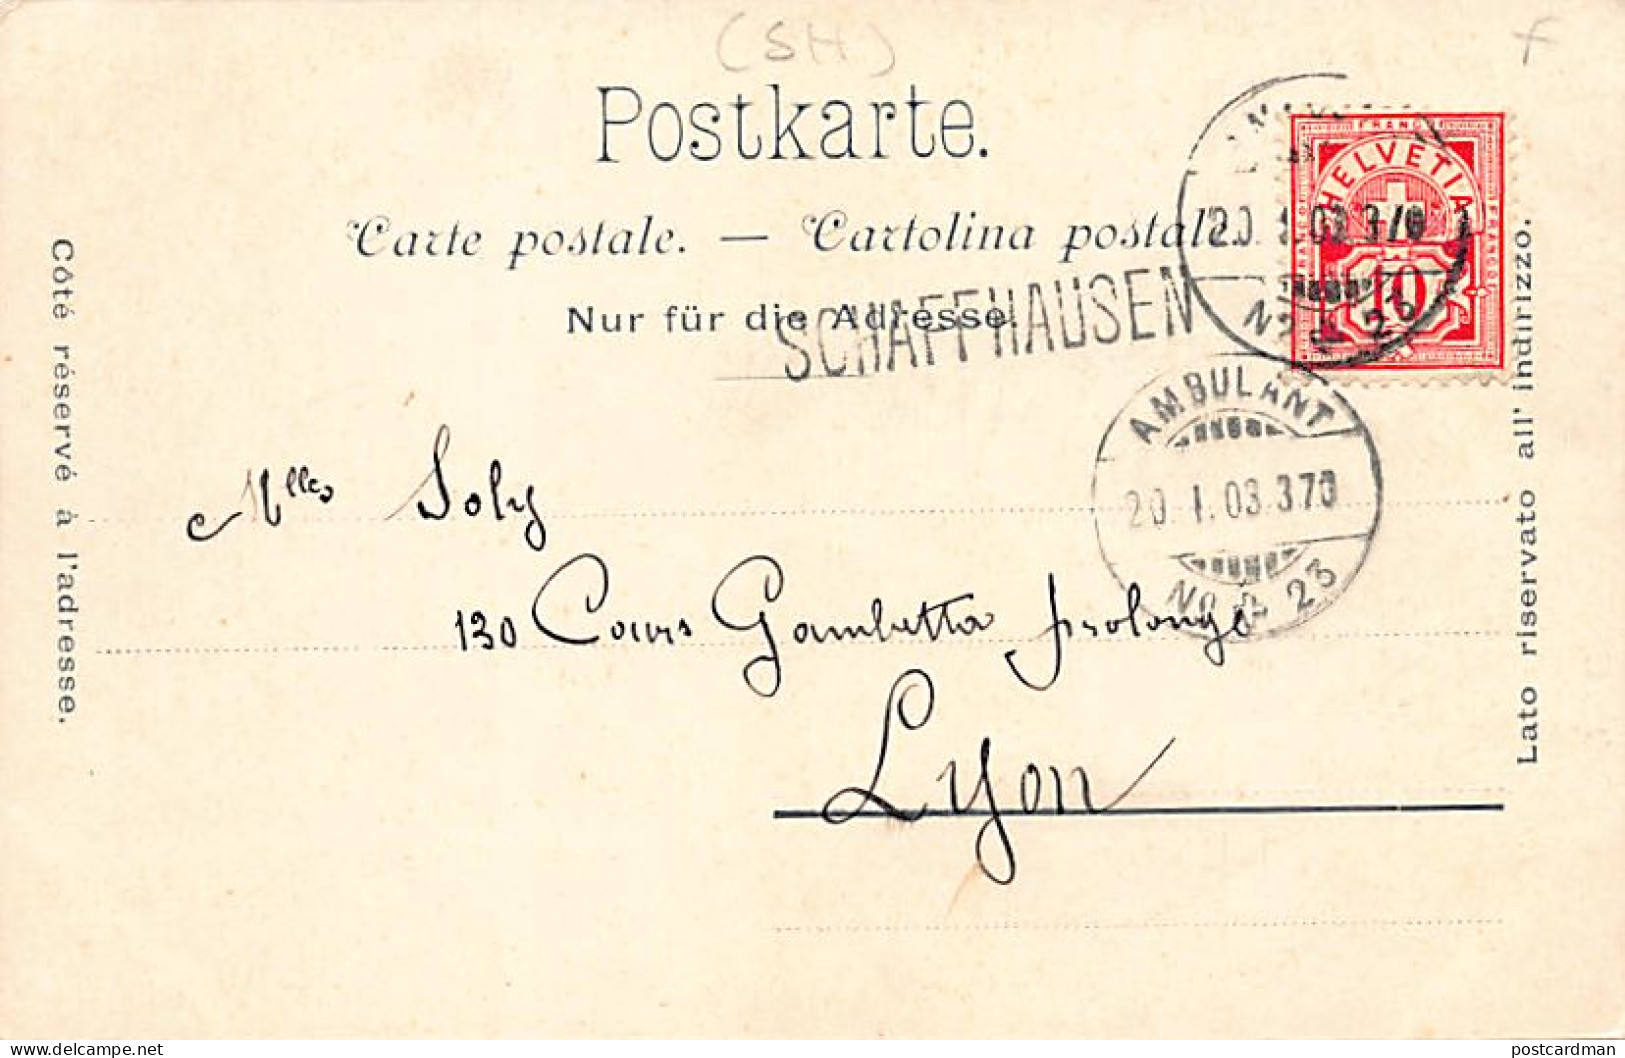 (SH)
F
Postkarte.
Carte postale. — Cartolina postale.
Nur für die Adresse.
SCHAFFHAUSEN
FRANCO
HELVETIA
10
20. I. 03. 370
No. A 23
AMBULANT
20. I. 03. 370
No. A 23
Mlles Soly
130 Cours Gambetta prolongé
Lyon
Côté réservé à l'adresse.
Lato riservato all' indirizzo.
postcardman